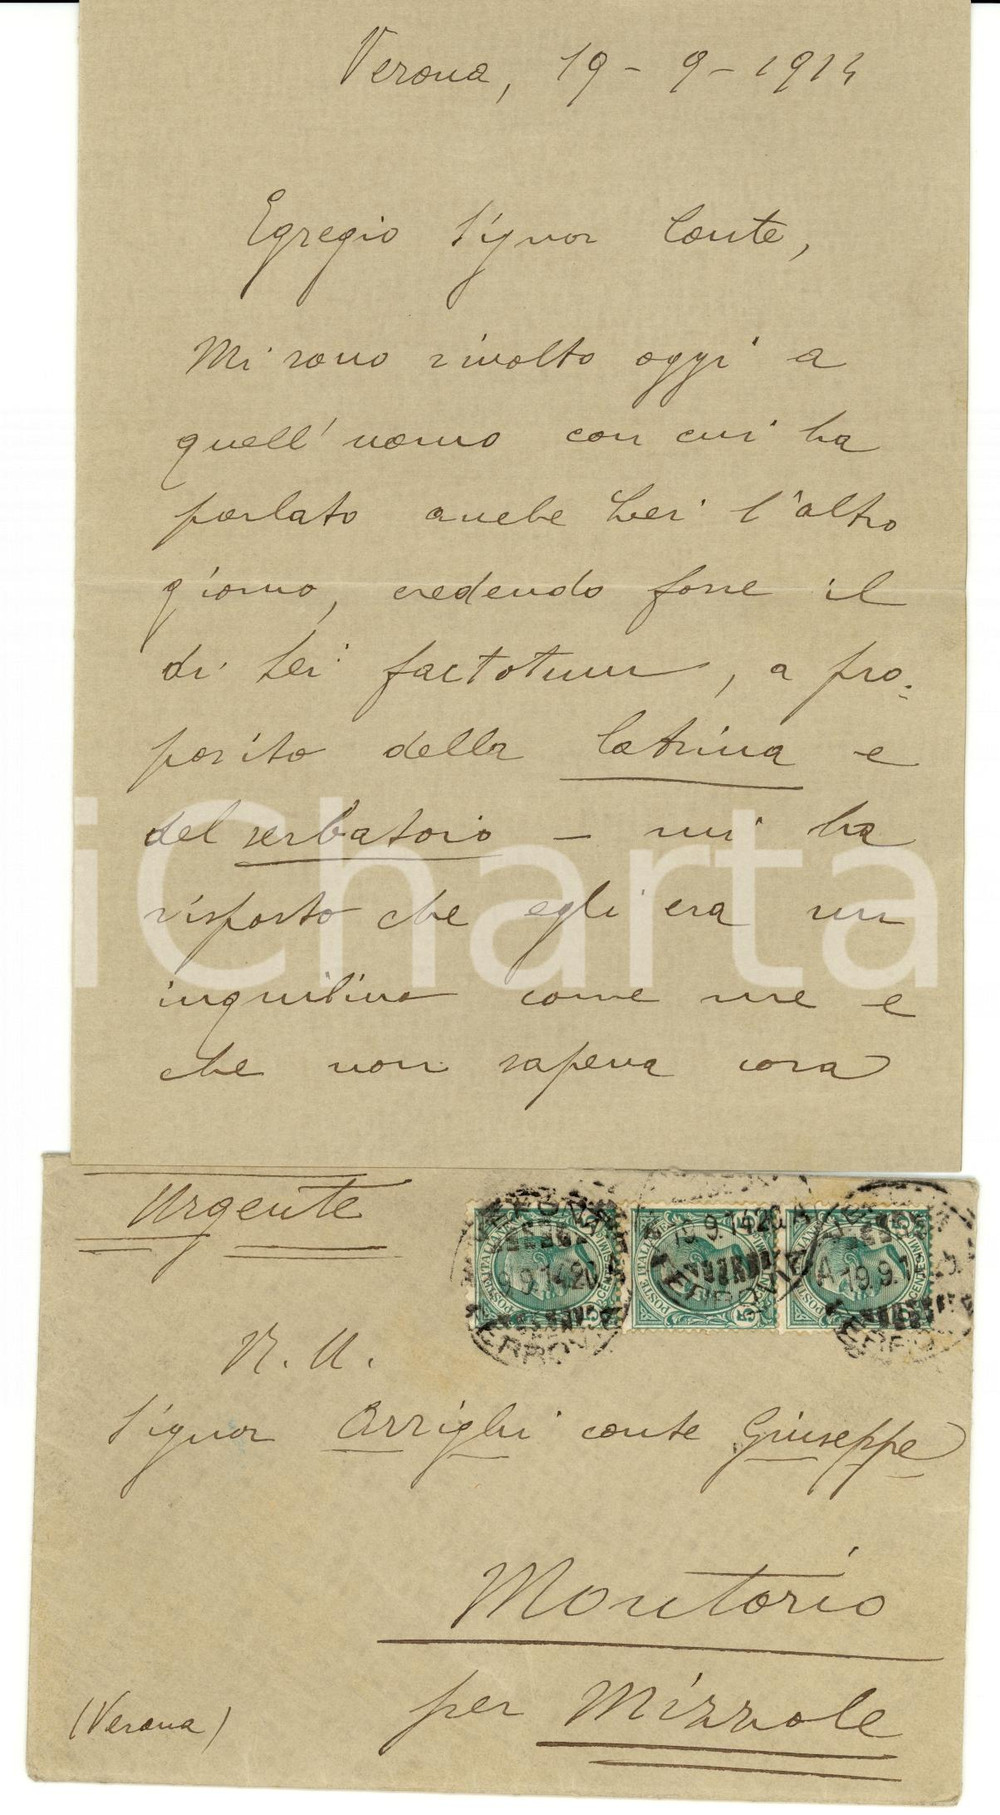 Verona, 19-9-1914
Egregio Signor Conte,
Mi sono rivolto oggi a
quell'uomo con cui ha
parlato anche Lei l'altro
giorno, credendo forse il
di Lei factotum, a pro=
posito della latrina e
del serbatoio — mi ha
risposto che egli era un
inquilino come me e
che non sapeva cosa
iCharta
Urgente
VERONA
FERROVIA
19.9.14 20
POSTE ITALIANE
CENTESIMI
5
N. U.
Signor Arrighi conte Giuseppe
Montorio
per Mizzole
(Verona)